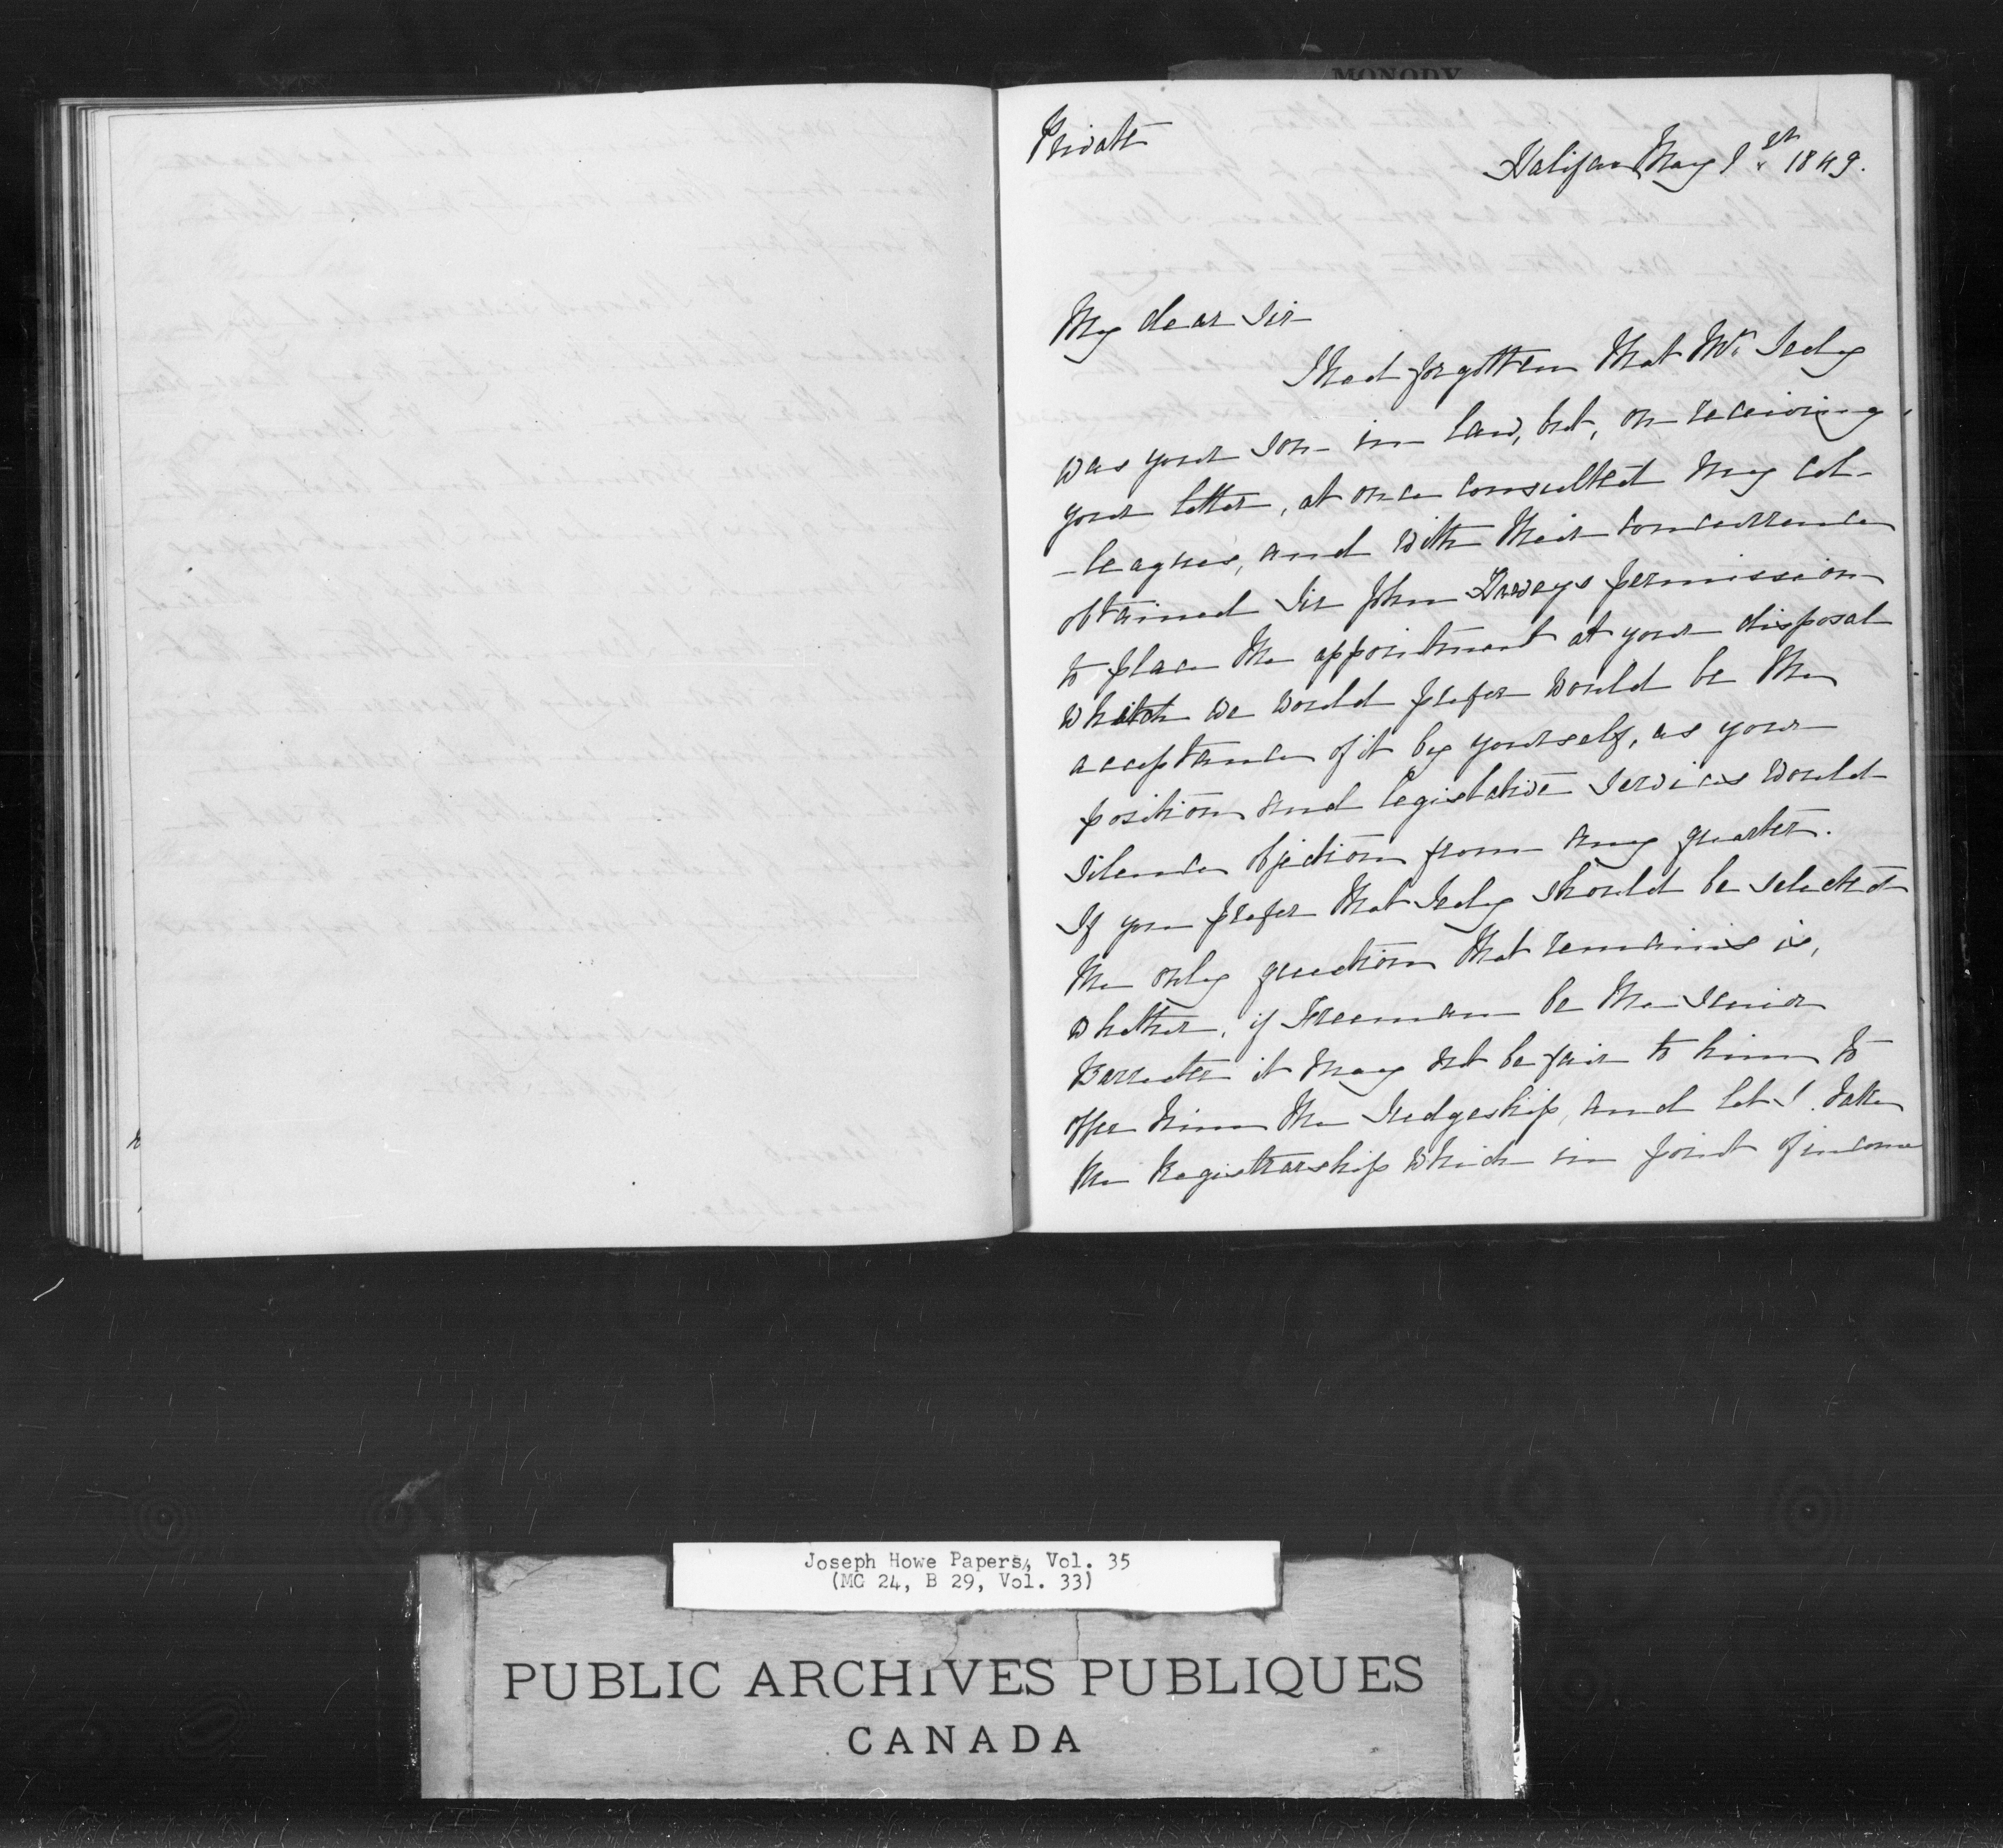 MONODY
Private
Halifax May 1st 1849.
My dear Sir
I had forgotten that Mr. Sedy
was your son in law, but, on receiving
your letter, at once consulted my col-
-leagues, and with their concurrence
obtained Sir John Harveys permission
to place the appointment at your disposal
which we would prefer would be the
acceptance of it by yourself, as your
position and legislative services would
silence objection from any quarter.
If you prefer that should be selected
the only question that remains is,
whether, if Freeman be the senior
Barrister it may not be fair to him to
offer him the Judgeship, and let S. take
the Registrarship which in point of income
Joseph Howe Papers, Vol. 35
(MG 24, B 29, Vol. 33)
PUBLIC ARCHIVES PUBLIQUES
CANADA